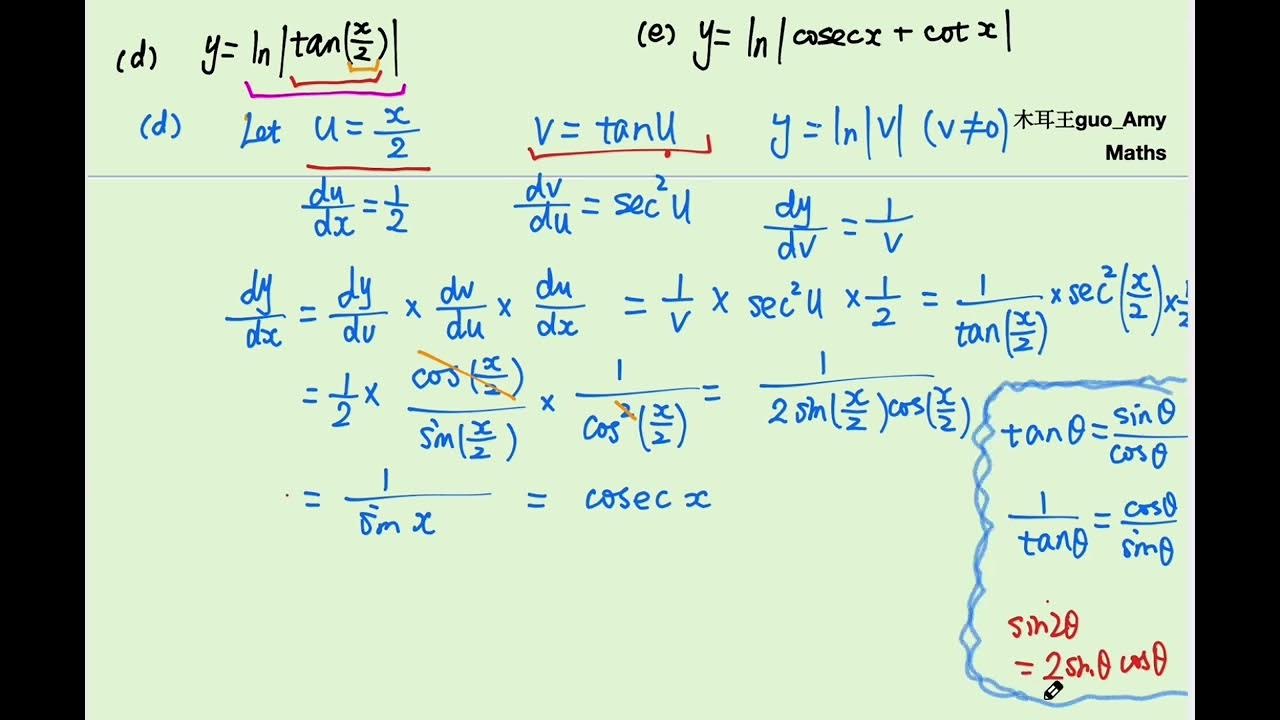 (d) y = ln|tan(x/2)| (e) y = ln|cosecx + cotx|
(d) Let u = x/2 v = tanu y = ln|v| (v≠0)
木耳王guo_Amy
Maths
du/dx = 1/2 dv/du = sec²u dy/dv = 1/v
dy/dx = dy/dv × dv/du × du/dx = 1/v × sec²u × 1/2 = 1/tan(x/2) × sec²(x/2) × 1/2
= 1/2 × cos(x/2)/sin(x/2) × 1/cos²(x/2) = 1/2sin(x/2)cos(x/2)
= 1/sin x = cosec x
tanθ = sinθ/cosθ
1/tanθ = cosθ/sinθ
sin2θ
= 2sinθ cosθ